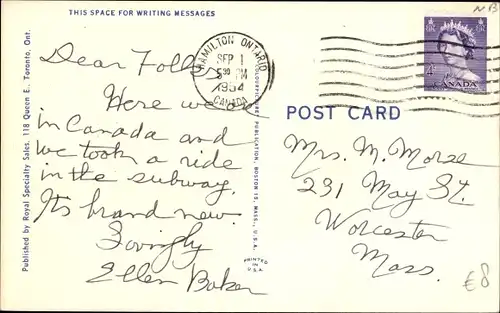 THIS SPACE FOR WRITING MESSAGES
Dear Folks
Here we are
in Canada and
we took a ride
in the subway.
Its brand new.
Lovingly
Ellen Baker
Published by Royal Specialty Sales, 118 Queen E., Toronto, Ont.
PUBLICATION, BOSTON 15, MASS., U.S.A.
PRINTED
IN
U.S.A.
HAMILTON ONTARIO
SEP 1
5 30 PM
1954
CANADA
4
CANADA
NB
POST CARD
Mrs. M. Morse
231 May St.
Worcester
Mass.
£8